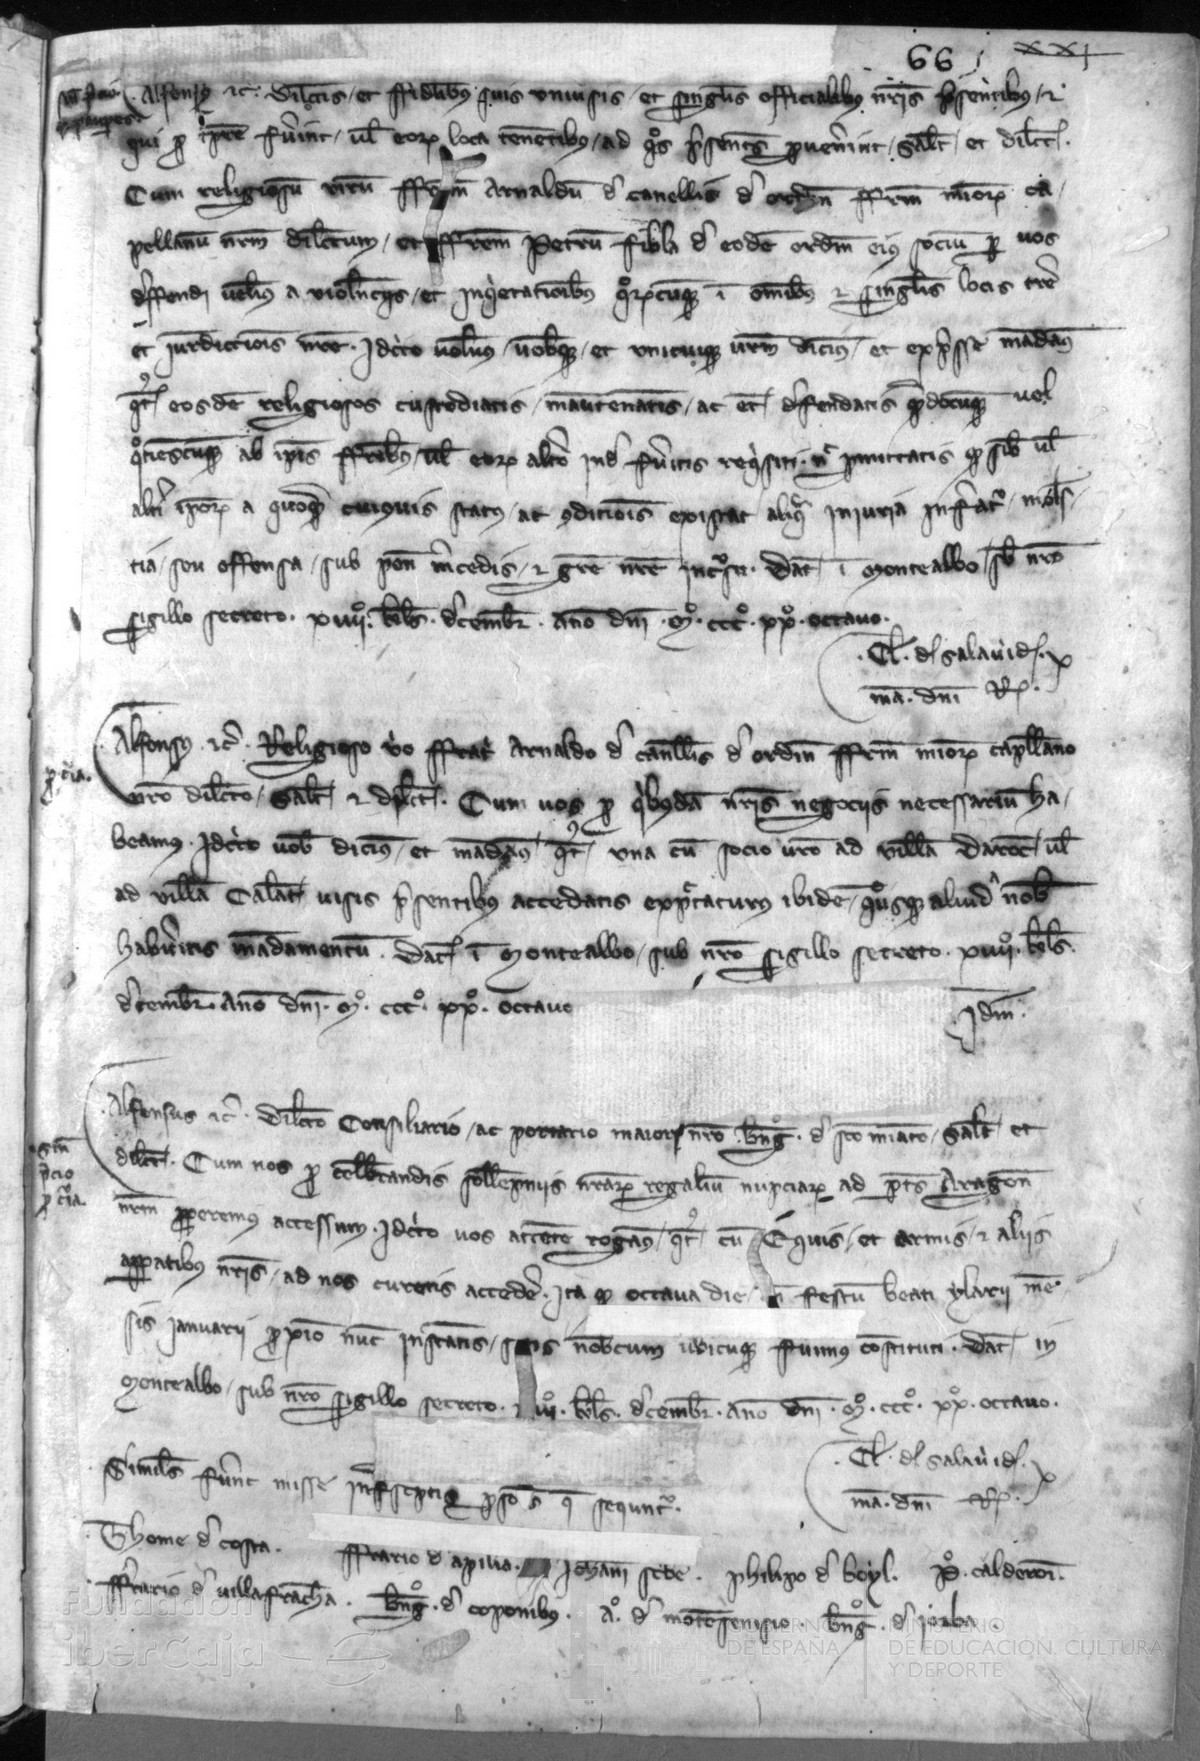 66 XXI
Alfonsus etc. Dilectis et fidelibus suis universis et singulis officialibus nostris presentibus et
qui pro tempore fuerint vel eorum loca tenentibus ad quos presentes pervenerint salutem et dilect.
Cum religiosum virum fratrem Arnaldum de canellis de ordine fratrum minorum ca
pellanum nostrum dilectum et fratrem Petrum fibla de eodem ordine eius socium per vos
deffendi velimus a violenciis et inquietationibus quorumcumque in omnibus et singulis locis terre
et jurdictionis nostre. Idcirco volumus vobisque et unicuique vestrum dicimus et expresse mandamus
quatenus eosdem religiosos custodiatis manuteneatis ac etiam defendatis quandocumque vel
quotienscumque ab ipsis fratribus vel eorum altero inde fueritis requisiti. nec permittatis per sibi vel
alteri ipsorum a quoquam cuiusvis status ac condicionis existat aliqua injuria inferatur moles
tia seu offensa sub pena mercedis et gratie nostre. Dat in Montealbo sub nostro
sigillo secreto. xviiiº. kls. decembr. Anno dni. Mº. cccº. xxº. octavo.
Cl. de salavid.
ma. dni R.
Alfonsus etc. Religioso viro fratri Arnaldo de canellis de ordine fratrum minorum capellano
nostro dilecto salutem et dilect. Cum vos pro quibusdam nostris negociis necessarium ha
beamus. Idcirco vobis dicimus et mandamus quatenus una cum socio vestro ad villam Daroce vel
ad villam Calat visis presentibus accedatis expectaturus ibidem quousque aliud a nobis
habueritis mandamentum. Dat in Montealbo sub nostro sigillo secreto. xviiiº. kls.
decembr. Anno dni. Mº. cccº. xxº. octavo
Idem.
Alfonsus etc. Dilecto Consiliario ac portario maiori nostro bngº. de sco minato salutem et
dilect. Cum nos pro celebrandis sollempniis nostrarum regalium nupciarum ad partes Aragon
nostrum properemus accessum. Idcirco vos attente rogamus quatenus cum Equis et armis et aliis
apparatibus vestris ad nos curetis accedere. Ita quod octava die festum beati ylarii men
sis januarii proximo nunc instantis sitis nobiscum ubicumque fuerimus constituti. Dat in
Montealbo sub nostro sigillo secreto. kls. decembr. Anno dni. Mº. cccº. xxº. octavo.
Cl. de salavid.
ma. dni R.
Similes fuerunt misse infrascriptis personis que sequntur.
Thome de costa. fferrario d apilia. Johani Philipo de boyl. Pº. calderoni.
fferrario de villafrancha. bngº. de coponibus. Aº. de bngº. de jorba.
Fundación
iberCaja
GOBIERNO DE ESPAÑA
MINISTERIO DE EDUCACIÓN, CULTURA Y DEPORTE